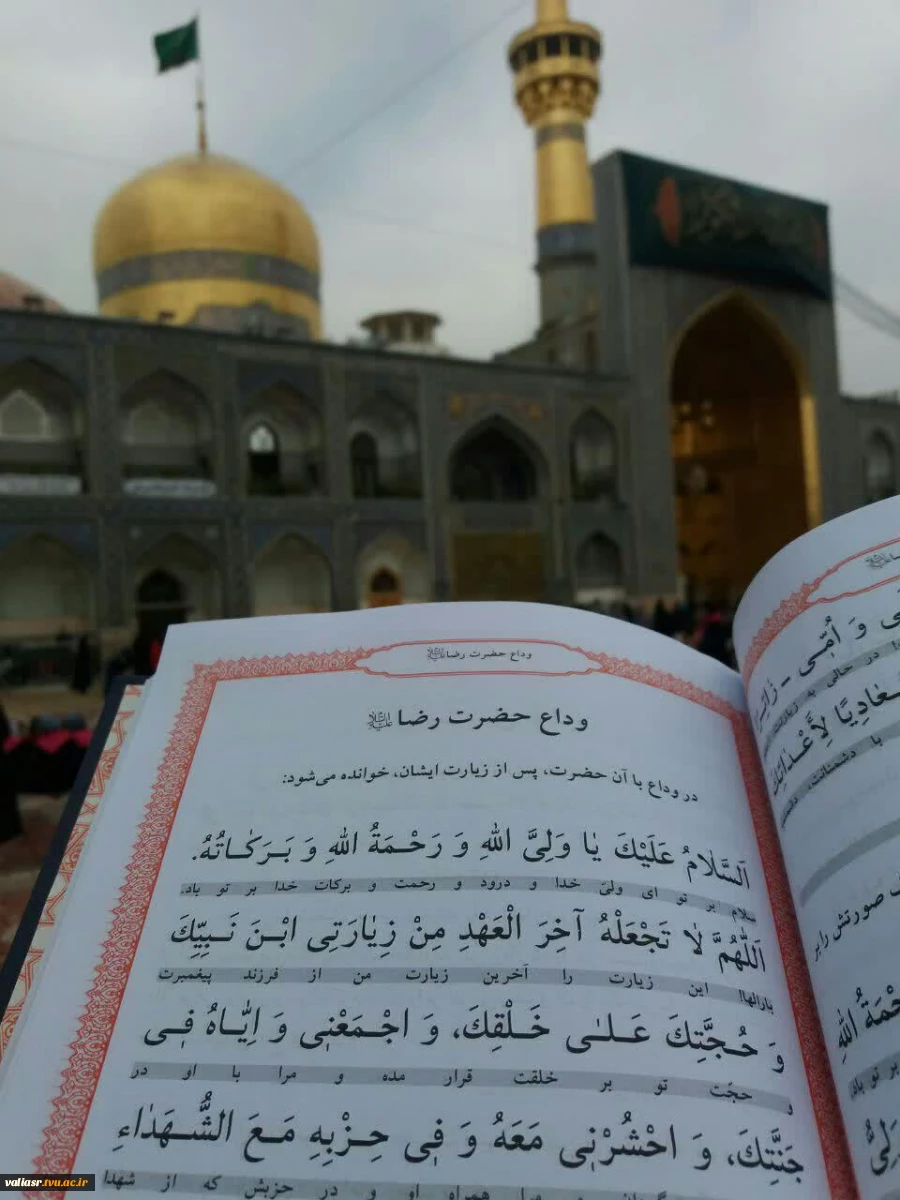 وداع حضرت رضا
وداع حضرت رضا علیه‌السلام
در وداع با آن حضرت، پس از زیارت ایشان، خوانده می‌شود:
اَلسَّلٰامُ عَلَيْكَ يٰا وَلِيَّ اللهِ وَ رَحْـمَةُ اللهِ وَ بَـرَكٰـاتُهُ.
سلام بر تو ای ولیّ خدا و درود و رحمت و برکات خدا بر تو باد.
اَللّٰهُمَّ لٰا تَجْعَلْهُ آخِرَ الْعَهْدِ مِنْ زِيٰارَتِى ابْـنَ نَـبِيِّكَ
بارالها! این زیارت را آخرین زیارت من از فرزند پیغمبرت
وَ حُـجَّتِكَ عَـلـىٰ خَـلْقِكَ، وَ اجْـمَعْنٖى وَ اِيّٰـاهُ فٖـى
و حجّت تو بر خلقت قرار مده و مرا با او در
جَنَّتِكَ، وَ احْشُرْنٖى مَعَهُ وَ فٖى حِـزْبِهِ مَـعَ الشُّـهَدٰاءِ
مرا همراه او و در حزبش که از شهدا
وَ اُمّٖى ـ
در حالی به
لِأَعْدٰائِكَ
با دشمنانت،
صورتش را بر
اللهِ
بر تو باد.
valiasr.tvu.ac.ir